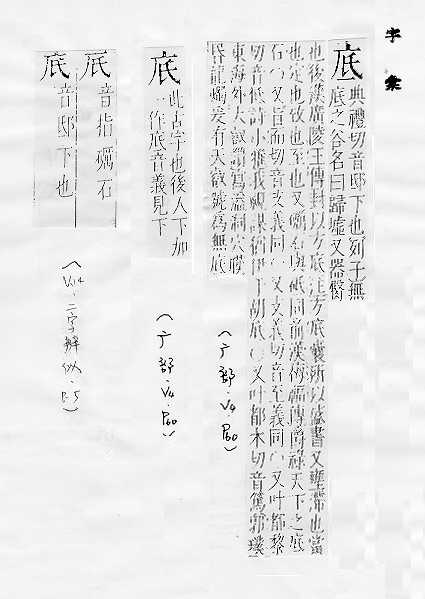 字彙
底 典禮切音邸下也列子無
底之谷名曰歸虛又器臀
也後漢廣陵王傳封以方底注方底囊所以盛書又壅滯也當
也定也故也至也又礪石與砥同前漢梅福傳爵祿天下之底
石 又旨而切音支義同 又支義切音至義同 又叶都黎
切音低詩小雅我視謀猶伊于胡底 又叶都木切音篤郭璞
東海外大壑讚寫溢洞穴暵
昏龍燭爰有大壑號爲無底
厎 此古字也後人下加
一作底音義見下
厎 音指礪石
底 音邸下也
(广部·V4·P60)
(广部·V4·P60)
(V14·二字辨似·P.5)